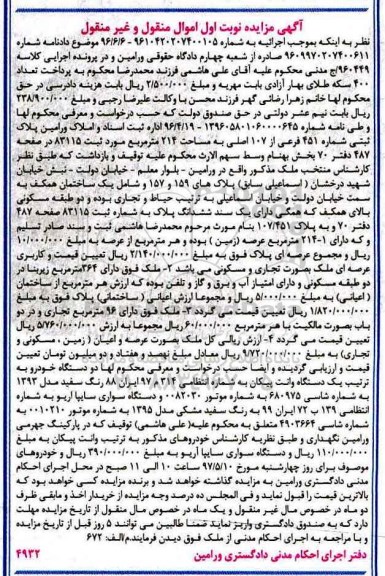 آگهی مزایده نوبت اول اموال منقول و غیر منقول
نظر به اینکه بموجب اجرائیه به شماره ۹۶۱۰۴۲۰۲۰۷۴۰۰۱۰۵ - ۹۶/۶/۶ موضوع دادنامه شماره
۹۶۰۹۹۷۰۲۰۷۴۰۰۶۱۱ صادره از شعبه چهارم دادگاه حقوقی ورامین و در پرونده اجرایی کلاسه
۹۶۰۴۴۹/ج مدنی محکوم علیه آقای علی هاشمی فرزند محمدرضا محکوم به پرداخت تعداد
۴۰۰ سکه طلای بهار آزادی بابت مهریه و مبلغ ۲/۵۰۰/۰۰۰ ریال بابت هزینه دادرسی در حق
محکوم لها خانم زهرا رضائی گهر فرزند محسن با وکالت علیرضا رجبی و مبلغ ۲۳۸/۹۰۰/۰۰۰
ریال بابت نیم عشر دولتی در حق صندوق دولت که حسب درخواست و معرفی محکوم لها
و طی نامه شماره ۱۳۹۶۰۵۸۰۱۰۶۰۰۰۰۶۴۵ - ۹۶/۴/۱۹ اداره ثبت اسناد و املاک ورامین پلاک
ثبتی شماره ۴۵۱ فرعی از ۱۰۷ اصلی به مساحت ۲۱۴ مترمربع مورد ثبت ۸۳۱۱۵ در صفحه
۴۸۷ دفتر ۷۰ بخش بهنام وسط سهم الارث محکوم علیه توقیف و بازداشت که طبق نظر
کارشناس منتخب ملک مذکور واقع در ورامین - بلوار معلم - خیابان دولت - نبش خیابان
شهید درخشان (اسماعیلی سابق) پلاک های ۱۵۹ و ۱۵۷ و شامل یک ساختمان همکف به
سمت خیابان دولت و خیابان اسماعیلی به ترتیب حیاط و تجاری بوده و دو طبقه مسکونی
بالای همکف که همگی دارای یک سند ششدانگ پلاک به شماره ثبت ۸۳۱۱۵ صفحه ۴۸۷
دفتر ۷۰ و به پلاک ۱۰۷/۴۵۱ بنام مورث مرحوم محمدرضا هاشمی ثبت و سند صادر تسلیم
و که دارای ۱-۲۱۴ مترمربع عرصه (زمین) بوده و هر مترمربع از عرصه به مبلغ ۱۰/۰۰۰/۰۰۰
ریال و مجموع عرصه ای پلاک فوق به مبلغ ۲/۱۴۰/۰۰۰/۰۰۰ ریال تعیین قیمت و کاربری
عرصه ای ملک بصورت تجاری و مسکونی می باشد ۲- ملک فوق دارای ۳۶۴مترمربع زیربنا در
دو طبقه مسکونی و دارای امتیاز آب و برق و گاز و تلفن بوده که ارزش هر مترمربع از ساختمان
(اعیانی) به مبلغ ۵/۰۰۰/۰۰۰ ریال و مجموعا ارزش اعیانی (ساختمانی) پلاک فوق به مبلغ
۱/۸۲۰/۰۰۰/۰۰۰ ریال تعیین قیمت می گردد ۳- ملک فوق دارای ۹۶ مترمربع تجاری و در دو
باب بصورت مالکیت با هر مترمربع ۶۰/۰۰۰/۰۰۰ ریال مجموعا به ارزش ۵/۷۶۰/۰۰۰/۰۰۰ ریال
تعیین قیمت می گردد ۴- ارزش ریالی کل ملک بصورت عرصه و اعیان (زمین ،مسکونی و
تجاری) به مبلغ ۹/۷۲۰/۰۰۰/۰۰۰ ریال معادل مبلغ نهصد و هفتاد و دو میلیون تومان تعیین
قیمت و ارزیابی گردیده و ایضا حسب درخواست و معرفی محکوم لها دو دستگاه خودرو به
ترتیب یک دستگاه وانت پیکان به شماره انتظامی ۳۱۴م۹۷ ایران ۸۸ رنگ سفید مدل ۱۳۹۳
به شماره شاسی ۶۸۰۹۷۵ به شماره موتور ۰۰۸۲۰۳۰ و دستگاه سواری سایپا آریو به شماره
انتظامی ۱۳۹ ب ۷۲ ایران ۹۹ به رنگ سفید مشکی مدل ۱۳۹۵ به شماره موتور ۰۰۱۰۲۱۰ به
شماره شاسی ۴۹۰۳۶۶۴ متعلق به محکوم علیه( علی هاشمی) توقیف که در پارکینگ جهرمی
ورامین نگهداری و طبق نظریه کارشناس خودروهای مذکور به ترتیب وانت پیکان به مبلغ
۱۱۰/۰۰۰/۰۰۰ ریال و دستگاه سواری سایپا آریو به مبلغ ۳۹۰/۰۰۰/۰۰۰ ریال و خودروهای
موصوف برای روز چهارشنبه مورخ ۹۷/۵/۱۰ ساعت ۱۰ الی ۱۱ صبح در محل اجرای احکام
مدنی دادگستری ورامین به مزایده گذاشته خواهد شد و برنده مزایده کسی خواهد بود که
بالاترین قیمت را قبول نماید و فی المجلس ده درصد وجه مزایده از خریدار اخذ و مابقی ظرف
دو ماه در خصوص مال غیر منقول و یک ماه در خصوص مال منقول از تاریخ مزایده مهلت
دارد که به صندوق دادگستری واریز نماید ضمنا طالبین می توانند ۵ روز قبل از تاریخ مزایده
و با مراجعه به اجرای احکام مدنی از ملک فوق دیدن فرمایند.م/الف: ۶۷۲
دفتر اجرای احکام مدنی دادگستری ورامین
۴۹۳۲